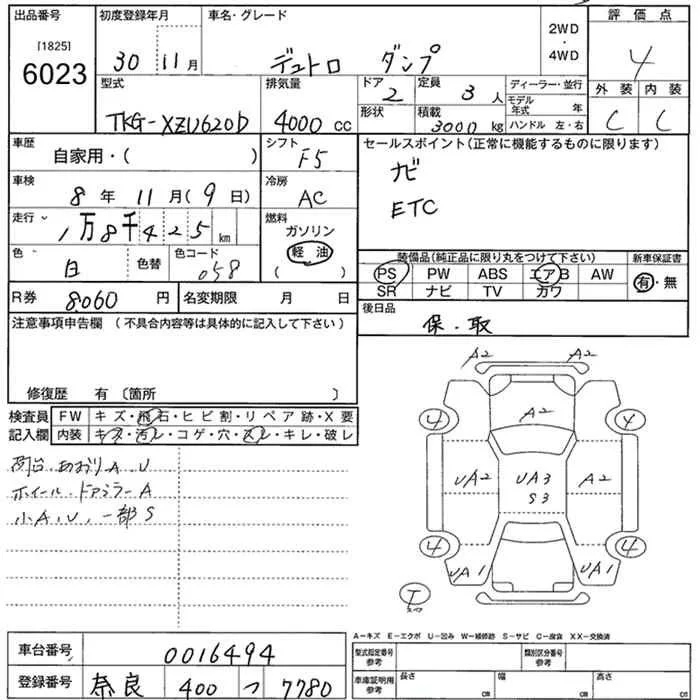 出品番号 初度登録年月 車名・グレード 評価点
[1825]
6023
30 11月 デュトロ ダンプ 2WD・4WD 4
型式 排気量 ドア 定員 ディーラー・並行 外装 内装
TKG-XZU620D 4000cc 2 3人 モデル年式 年 C C
形状 積載 3000kg ハンドル 左・右
車歴 シフト セールスポイント(正常に機能するものに限ります)
自家用・( ) F5 ナビ
車検 冷房 ETC
8年 11月(9日) AC
走行 燃料
1万8千425km ガソリン
軽油
( )
色 色替 色コード
白 058
装備品(純正品に限り丸をつけて下さい) 新車保証書
PS PW ABS エアB AW 有・無
SR ナビ TV カワ
R券 8,060円 名変期限 月 日 後日品
保・取
注意事項申告欄 (不具合内容等は具体的に記入して下さい)
修復歴 有 〔箇所 〕
検査員記入欄 FW キズ・飛石・ヒビ割・リペア跡・X要
内装 キズ・汚レ・コゲ・穴・スレ・キレ・破レ
荷台、あおりA、U
ホイール、ドアミラーA
小A、U、一部S
A2 A2
A2
4 4
UA2 UA3 A2
S3
4 4
UA1 UA1
T
A-キズ E-エクボ U-凹み W-補修跡 S-サビ C-腐食 XX-交換済
車台番号 0016494 型式指定番号 参考 類別区分番号 参考
登録番号 奈良 400 つ 7780 車庫証明用 参考 長さ cm 幅 cm 高さ cm